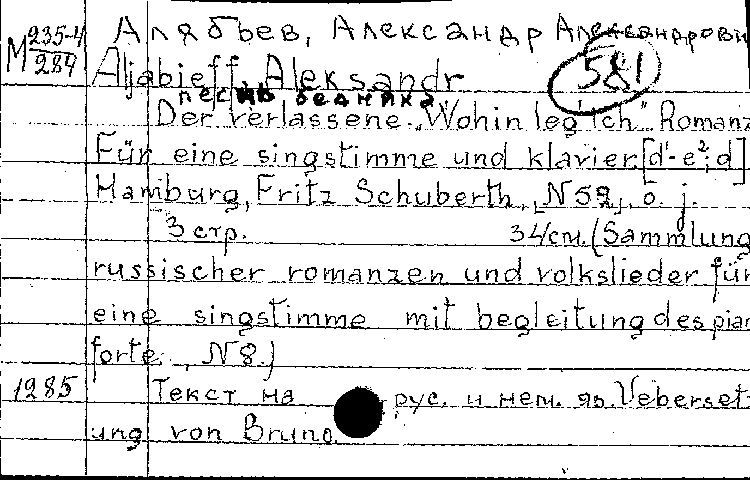 М 235-4/284
Алябьев, Александр Александрович
Aljabieff, Aleksandr
581
песнь бедняка
Der verlassene. „Wohin leg' ich" Romanz
Für eine singstimme und klavier [d'-e²; d]
Hamburg, Fritz Schuberth, [N 52], o. j.
3 стр. 34 см. (Sammlung
russischer romanzen und volkslieder für
eine singstimme mit begleitung des piano
forte, N 8.)
1285 Текст на рус. и нем. яз. Uebersetz
ung von Bruno